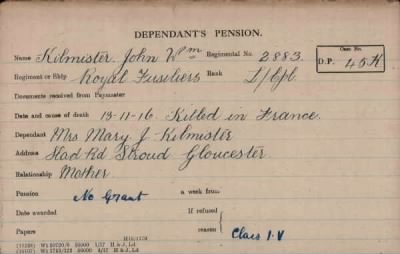 DEPENDANT'S PENSION.
Name Kilmister John Wm Regimental No. 2883 Case No.
Regiment or Ship Royal Fusiliers Rank L/Cpl. D.P. 45K
Documents received from Paymaster
Date and cause of death 13-11-16. Killed in France.
Dependant Mrs Mary J Kilmister
Address Slad Rd Stroud Gloucester
Relationship Mother
Pension No Grant a week from
Date awarded If refused
Papers reason Class I.V